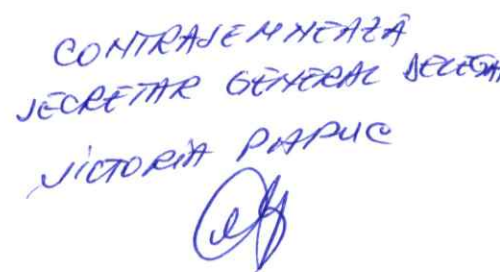 CONTRASEMNEAZĂ
SECRETAR GENERAL DELEGAT
VICTORIA PAPUC